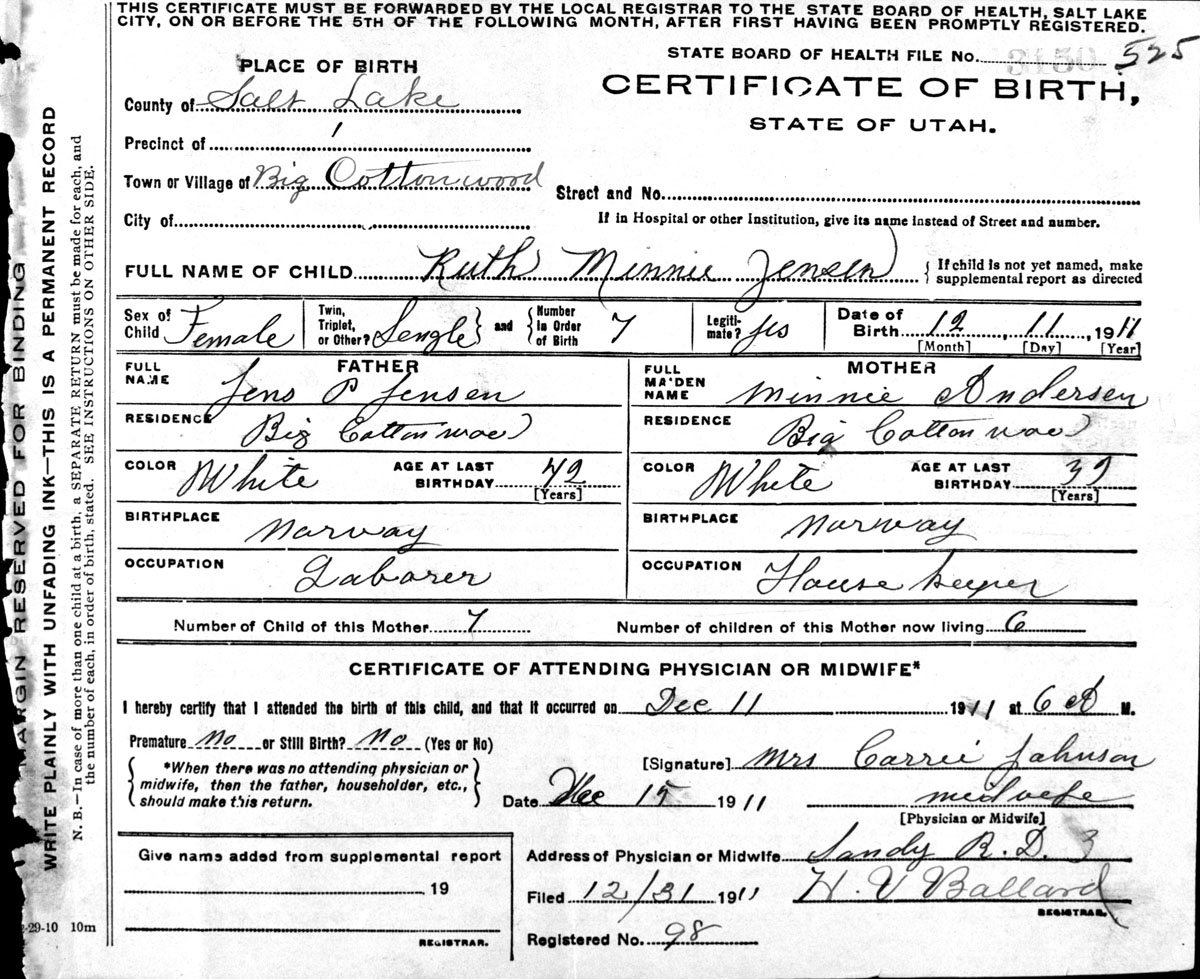 THIS CERTIFICATE MUST BE FORWARDED BY THE LOCAL REGISTRAR TO THE STATE BOARD OF HEALTH, SALT LAKE
CITY, ON OR BEFORE THE 5TH OF THE FOLLOWING MONTH, AFTER FIRST HAVING BEEN PROMPTLY REGISTERED.
MARGIN RESERVED FOR BINDING
WRITE PLAINLY WITH UNFADING INK—THIS IS A PERMANENT RECORD
N. B.—In case of more than one child at a birth, a SEPARATE RETURN must be made for each, and
the number of each, in order of birth, stated. SEE INSTRUCTIONS ON OTHER SIDE.
STATE BOARD OF HEALTH FILE No. 3150 525
PLACE OF BIRTH
CERTIFICATE OF BIRTH,
STATE OF UTAH.
County of Salt Lake
Precinct of 1
Town or Village of Big Cottonwood
Street and No.
City of
If in Hospital or other Institution, give its name instead of Street and number.
FULL NAME OF CHILD Ruth Minnie Jensen { If child is not yet named, make
supplemental report as directed
Sex of Child Female
Twin, Triplet, or Other? Sengle } and { Number In Order of Birth 7
Legiti-mate? yes
Date of Birth 12, 11, 1911
[Month] [Day] [Year]
FATHER
MOTHER
FULL NAME Jens P Jensen
FULL MAIDEN NAME Minnie Andersen
RESIDENCE Big Cottonwood
RESIDENCE Big Cottonwood
COLOR White AGE AT LAST BIRTHDAY 42 [Years]
COLOR White AGE AT LAST BIRTHDAY 39 [Years]
BIRTHPLACE Norway
BIRTHPLACE Norway
OCCUPATION Laborer
OCCUPATION House keeper
Number of Child of this Mother 7 Number of children of this Mother now living 6
CERTIFICATE OF ATTENDING PHYSICIAN OR MIDWIFE*
I hereby certify that I attended the birth of this child, and that it occurred on Dec 11 1911 at 6 A M.
Premature no or Still Birth? No (Yes or No)
{ *When there was no attending physician or
midwife, then the father, householder, etc.,
should make this return. }
[Signature] Mrs Carrie Johnson
Date Dec 15 1911 midwefe
[Physician or Midwife]
Give name added from supplemental report
19
REGISTRAR.
Address of Physician or Midwife Sandy R. D. 3
Filed 12/31 1911 H. V Ballard
REGISTRAR.
Registered No. 98
-29-10 10m